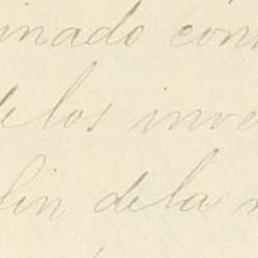 inado con
de los inve
fin de la